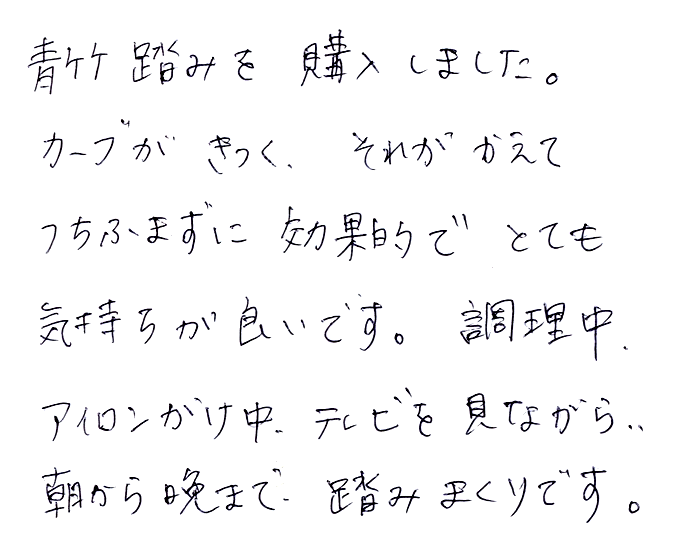 青竹踏みを購入しました。
カーブがきつく、それがかえて
つちふまずに効果的でとても
気持ちが良いです。調理中、
アイロンがけ中、テレビを見ながら‥
朝から晩まで、踏みまくりです。